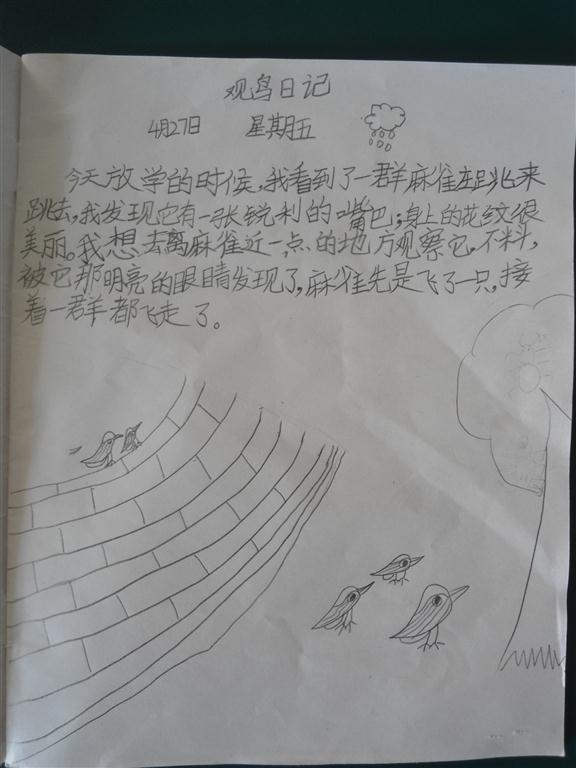 观鸟日记
4月27日 星期五
今天放学的时候,我看到了一群麻雀在跳来
跳去,我发现它有一张锐利的嘴巴;身上的花纹很
美丽。我想去离麻雀近一点的地方观察它,不料,
被它那明亮的眼睛发现了,麻雀先是飞了一只,接
着一群都飞走了。